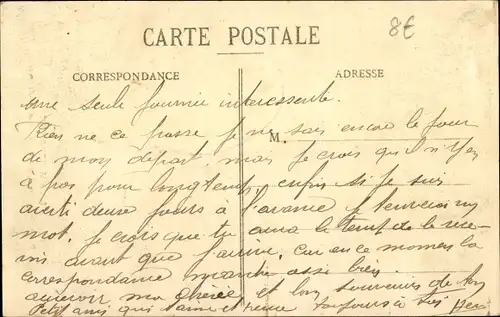 8€
CARTE POSTALE
CORRESPONDANCE
ADRESSE
une seule journée interessente.
Rien ne ce passe je ne sais encore le jour
M.
de mon départ mais je crois qu'il n'y en
à pas pour longtemps, enfin si je suis
averti deux jours à l'avance j'enverai un
mot. Je crois que tu aura le temps de le rece-
voir avant que j'arrive, car en ce moment la
correspondance marche assé bien.
aurevoir ma chérie et bon souvenir de ton
Petit ami qui t'aime et pense toujours à toi